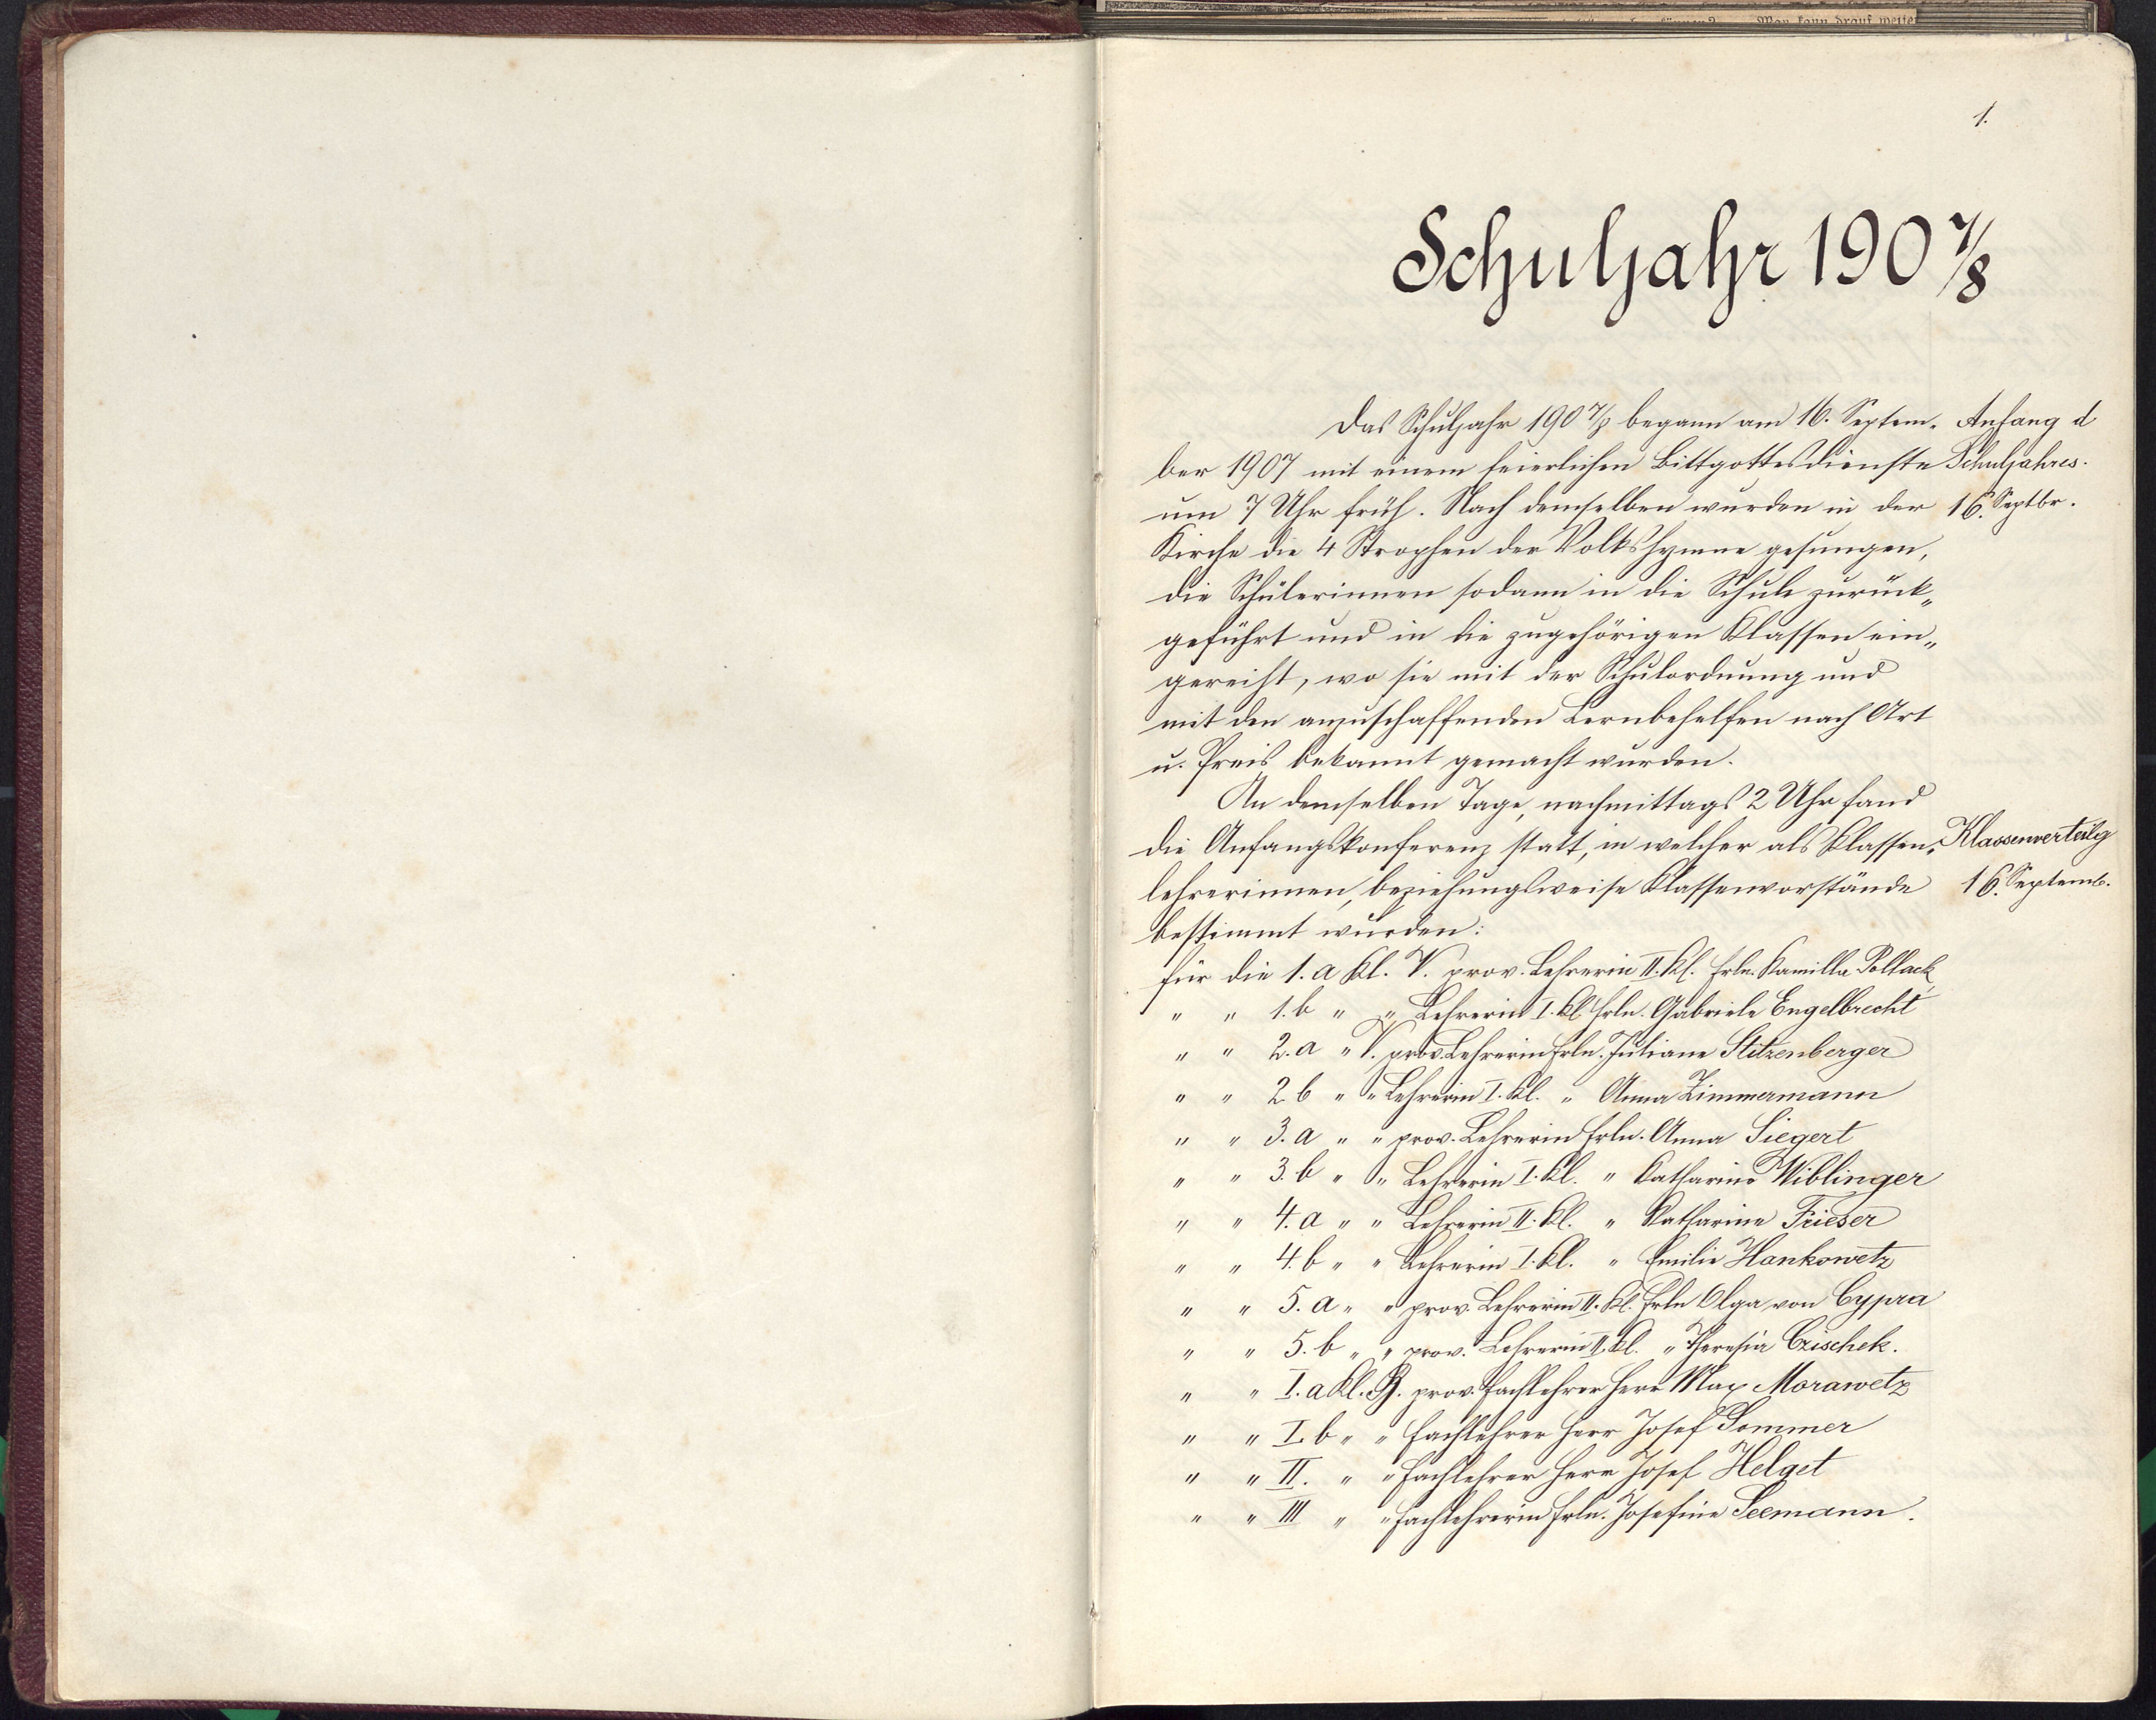 Man kann drauf weite
1.
Schuljahr 1907/8
Das Schuljahr 1907/8 begann am 16. Septem-
Anfang d
ber 1907 mit einem feierlichen Bittgottesdienste
Schuljahres.
um 7 Uhr früh. Nach demselben wurden in der
16. Septbr.
Kirche die 4 Strophen der Volkshymne gesungen,
die Schülerinnen sodann in die Schule zurück„
geführt und in die zugehörigen Klassen ein„
gereiht, wo sie mit der Schulordnung und
mit den anzuschaffenden Lernbehelfen nach Art
u. Preis bekannt gemacht wurden.
An demselben Tage, nachmittags 2 Uhr fand
die Anfangskonferenz statt, in welcher als Klassen„
Klassenverteilg
lehrerinnen, beziehungsweise Klassenvorstände
16. Septemb.
bestimmt wurden:
für die 1. a Kl. V. prov. Lehrerin II. Kl. Frln. Kamilla Pollack,
" " 1. b " " Lehrerin I. Kl. Frln. Gabriele Engelbrecht
" " 2. a " V. prov. Lehrerin Frln. Juliane Stitzenberger
" " 2 b " " Lehrerin I. Kl. " Anna Zimmermann
" " 3. a " " prov. Lehrerin Frln. Anna Siegert
" " 3. b " " Lehrerin I. Kl. " Katharina Wiblinger
" " 4. a " " Lehrerin II. Kl. " Katharine Frieser
" " 4. b " " Lehrerin I. Kl. " Emilie Hankowetz
" " 5. a " " prov. Lehrerin II. Kl. Frln Olga von Cypra
" " 5. b " " prov. Lehrerin II. Kl. " Theresia Czischek.
" " I. a Kl. B. prov. Fachlehrer Herr Max Morawetz
" " I. b " " Fachlehrer Herr Josef Sommer
" " II. " " Fachlehrer Herr Josef Helget
" " III " " Fachlehrerin Frln. Josefine Seemann.